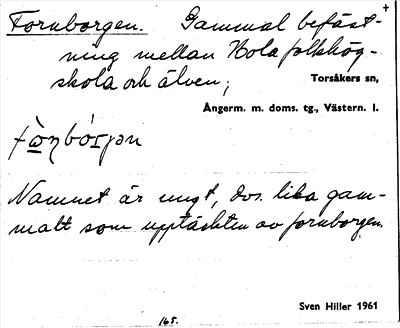 Fornborgen. Gammal befäst-
ning mellan Nola folkhög-
skola och älven; Torsåkers sn,
Ångerm. m. doms. tg., Västern. l.
Namnet är ungt, dvs. lika gam-
malt som upptäckten av fornborgen.
Sven Hiller 1961
165.